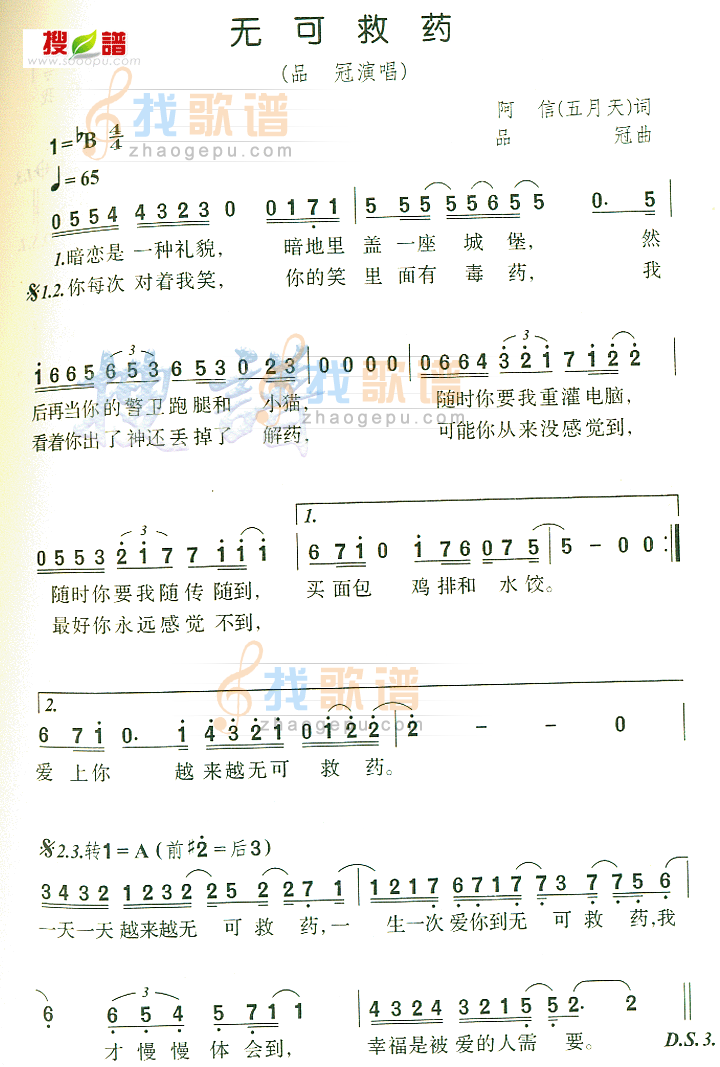 搜谱
www.sooopu.com
无可救药
(品 冠演唱)
阿 信(五月天)词
品 冠曲
找歌谱
zhaogepu.com
1=♭B 4/4
♩=65
0554 43230 0171 | 5 555 55655 0. 5
1.暗恋是 一种礼貌, 暗地里 盖 一座 城 堡, 然
𝄋1.2.你每次 对着我笑, 你的笑 里 面有 毒 药, 我
1665 653 653 0 23 | 0 0 0 0 | 0664 321 7 122
后再当你的警卫跑腿和 小猫, 随时你要我重灌电脑,
看着你出了神还丢掉了 解药, 可能你从来没感觉到,
找歌谱
zhaogepu.com
0553 217 7 111 | 1. 6 710 176 075 | 5 - 0 0 :‖
随时你要我随传随到, 买面包 鸡排和 水饺。
最好你永远感觉 不到,
找歌谱
zhaogepu.com
2.
6 71 0. 1 4321 0122 | 2 - - 0
爱 上你 越来越无可 救 药。
𝄋2.3.转1=A(前♯2=后3)
3432 1232 225 2 227 1 | 1217 6717 73 7 775 6
一天一天越来越无 可 救 药,一 生一次 爱你到无 可 救 药,我
6 654 5711 | 4323 3215 52. 2
才 慢 慢 体 会到, 幸福是被 爱的人需 要。 D.S. 3.